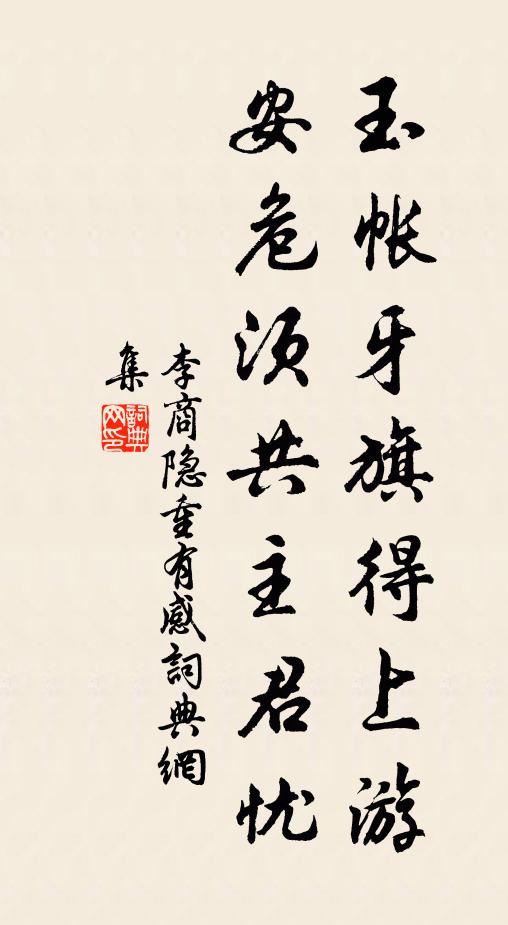 玉帐牙旗得上游
安危须共主君忧
李商隐重有感词典網
集
词典
网印